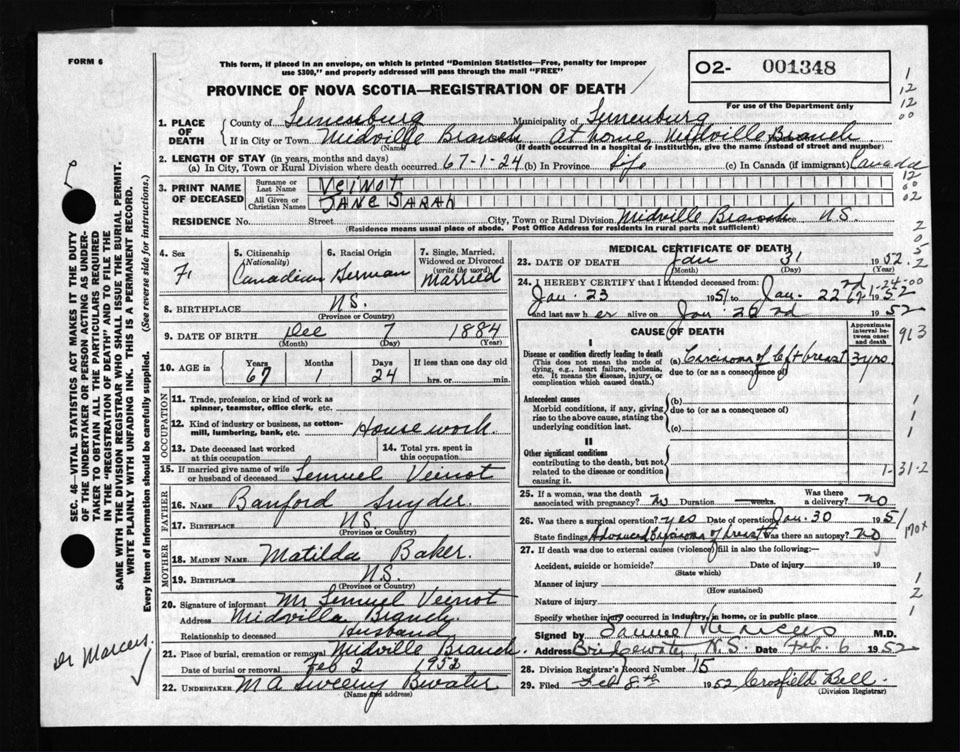 FORM 6
This form, if placed in an envelope, on which is printed "Dominion Statistics—Free, penalty for improper
use $300," and properly addressed will pass through the mail "FREE"
PROVINCE OF NOVA SCOTIA—REGISTRATION OF DEATH
02- 001348
For use of the Department only
1. PLACE OF DEATH { County of Lunenburg Municipality of Lunenburg
If in City or Town Midville Branch At home, Midville Branch
(Name) (If death occurred in a hospital or institution, give the name instead of street and number)
2. LENGTH OF STAY (in years, months and days)
(a) In City, Town or Rural Division where death occurred 67-1-24 (b) In Province life (c) In Canada (if immigrant) Canada
3. PRINT NAME OF DECEASED { Surname or Last Name VEINOT
All Given or Christian Names JANE SARAH
RESIDENCE No. Street City, Town or Rural Division Midville Branch N.S.
(Residence means usual place of abode. Post Office Address for residents in rural parts not sufficient)
4. Sex F.
5. Citizenship (Nationality) Canadian
6. Racial Origin German
7. Single, Married, Widowed or Divorced (write the word) Married
8. BIRTHPLACE N.S.
(Province or Country)
9. DATE OF BIRTH Dec 7 1884
(Month) (Day) (Year)
10. AGE in { Years 67 Months 1 Days 24 If less than one day old
hrs. or min.
OCCUPATION
11. Trade, profession, or kind of work as
spinner, teamster, office clerk, etc.
12. Kind of industry or business, as cotton-
mill, lumbering, bank, etc. Housework
13. Date deceased last worked at this occupation
14. Total yrs. spent in this occupation
15. If married give name of wife
or husband of deceased Lemuel Veinot
FATHER
16. NAME Banford Snyder
17. BIRTHPLACE N.S.
(Province or Country)
MOTHER
18. MAIDEN NAME Matilda Baker.
19. BIRTHPLACE N.S.
(Province or Country)
20. Signature of informant Mr Lemuel Veinot
Address Midville Branch
Relationship to deceased Husband
21. Place of burial, cremation or removal Midville Branch.
Date of burial or removal Feb 2 1952
22. UNDERTAKER M A Sweeny Bwater
(Name and address)
MEDICAL CERTIFICATE OF DEATH
23. DATE OF DEATH Jan 31 1952.
(Month) (Day) (Year)
24. I HEREBY CERTIFY that I attended deceased from:
Jan. 23 1951 to Jan. 22nd 1952
and last saw her alive on Jan 22nd 1952
CAUSE OF DEATH
Approximate interval between onset and death
I
Disease or condition directly leading to death
(This does not mean the mode of
dying, e.g., heart failure, asthenia,
etc. It means the disease, injury, or
complication which caused death.)
(a) Carcinoma of left breast 3 yrs
due to (or as a consequence of)
Antecedent causes
Morbid conditions, if any, giving
rise to the above cause, stating the
underlying condition last.
(b)
due to (or as a consequence of)
(c)
II
Other significant conditions
contributing to the death, but not
related to the disease or condition
causing it.
25. If a woman, was the death associated with pregnancy? no Duration — weeks. Was there a delivery? no
26. Was there a surgical operation? yes Date of operation Jan. 30 1951
State findings Advanced Carcinoma of breast Was there an autopsy? no
27. If death was due to external causes (violence) fill in also the following:—
Accident, suicide or homicide? Date of injury 19
(State which)
Manner of injury
(How sustained)
Nature of injury
Specify whether injury occurred in industry, in home, or in public place
Signed by Samuel Marcus M.D.
Address Bridgewater N.S. Date Feb. 6 1952
28. Division Registrar's Record Number 15
29. Filed Feb 8th 1952 Crosfield Bell.
(Division Registrar)
SEC. 46—VITAL STATISTICS ACT MAKES IT THE DUTY
OF THE UNDERTAKER OR PERSON ACTING AS UNDER-
TAKER TO OBTAIN ALL THE PARTICULARS REQUIRED
IN THE "REGISTRATION OF DEATH" AND TO FILE THE
SAME WITH THE DIVISION REGISTRAR WHO SHALL ISSUE THE BURIAL PERMIT.
WRITE PLAINLY WITH UNFADING INK. THIS IS A PERMANENT RECORD.
Every item of information should be carefully supplied. (See reverse side for instructions.)
Dr Marcus.
1
12
12
00
12
00
02
2
0
5
2
1-24-00
67
913
1
1
1
1-31-2
170x
1
2
1